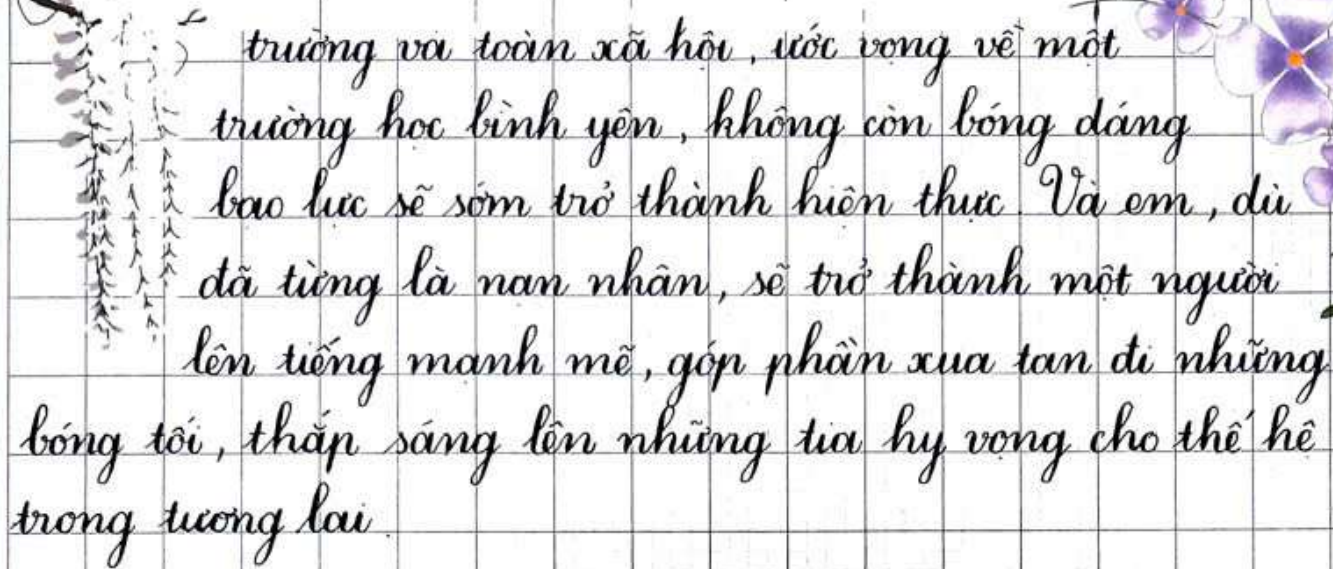 trường và toàn xã hội, ước vọng về một
trường học bình yên, không còn bóng dáng
bạo lực sẽ sớm trở thành hiện thực. Và em, dù
đã từng là nạn nhân, sẽ trở thành một người
lên tiếng mạnh mẽ, góp phần xua tan đi những
bóng tối, thắp sáng lên những tia hy vọng cho thế hệ
trong tương lai.